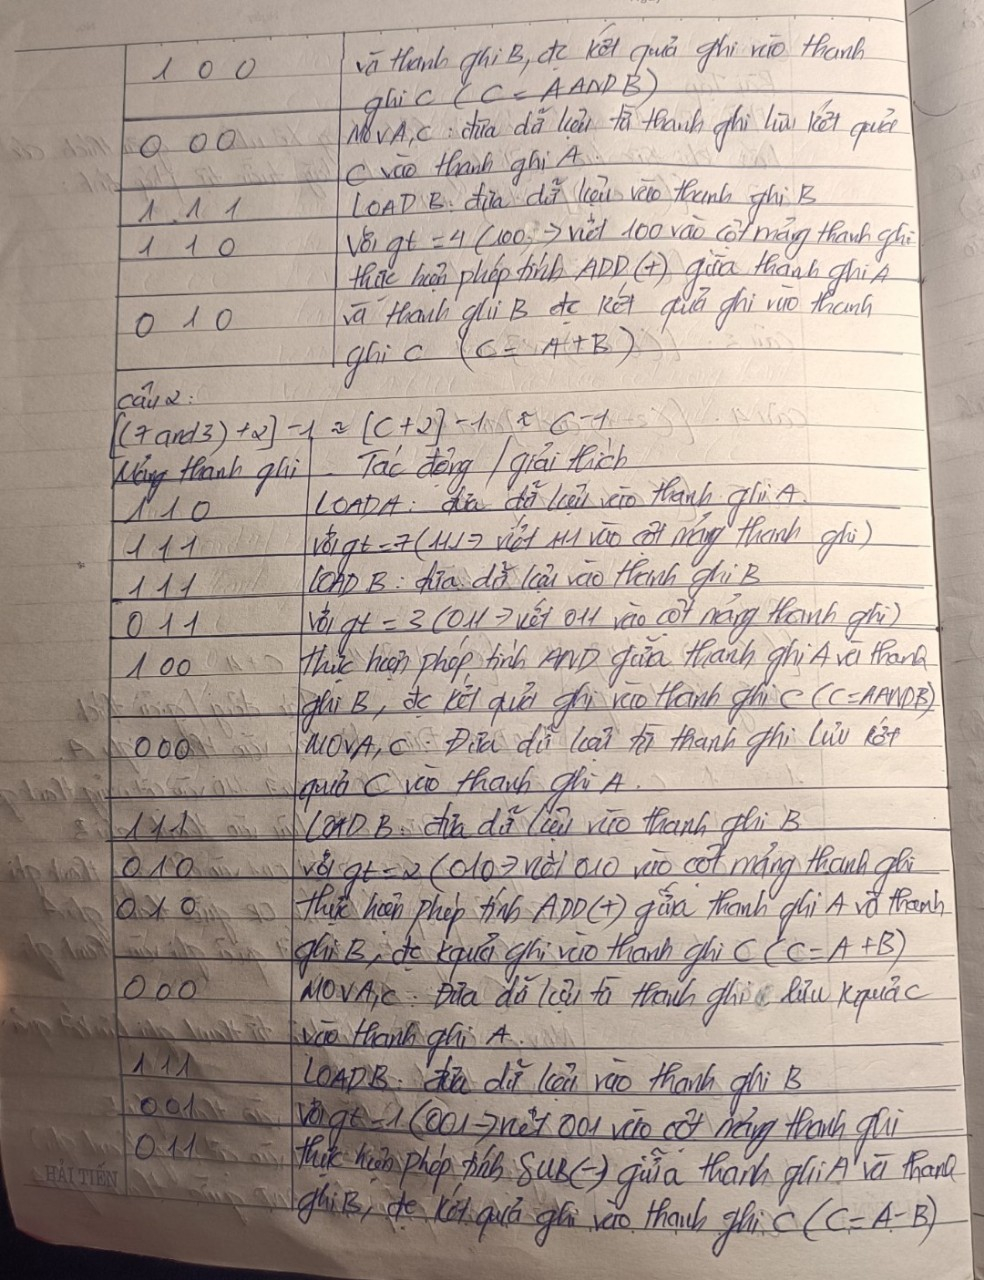 1 0 0
và thanh ghi B, đc kết quả ghi vào thanh
ghi C ( C = A AND B )
0 0 0
MOV A,C : đưa dữ liệu từ thanh ghi lưu kết quả
C vào thanh ghi A.
1 1 1
LOAD B: đưa dữ liệu vào thanh ghi B
1 1 0
Với gt = 4 (100 → viết 100 vào cột mảng thanh ghi
thức hiện phép tính ADD (+) giữa thanh ghi A
0 1 0
và thanh ghi B đc kết quả ghi vào thanh
ghi C ( C = A + B )
Câu 2:
[(7 and 3) + 2] - 1 ≈ [C + 2] - 1 ≈ C - 1
Mảng thanh ghi Tác động / giải thích
1 1 0 LOAD A: đưa dữ liệu vào thanh ghi A.
1 1 1 Với gt = 7 (111 → viết 111 vào cột mảng thanh ghi)
1 1 1 LOAD B: đưa dữ liệu vào thanh ghi B
0 1 1 Với gt = 3 (011 → viết 011 vào cột mảng thanh ghi)
1 0 0 thức hiện phép tính AND giữa thanh ghi A và thanh
ghi B, đc kết quả ghi vào thanh ghi C (C = A AND B)
0 0 0 MOV A,C : Đưa dữ liệu từ thanh ghi lưu kết
quả C vào thanh ghi A.
1 1 1 LOAD B: đưa dữ liệu vào thanh ghi B
0 1 0 với gt = 2 (010 → viết 010 vào cột mảng thanh ghi
0 1 0 thức hiện phép tính ADD(+) giữa thanh ghi A và thanh
ghi B, đc kquả ghi vào thanh ghi C (C = A + B)
0 0 0 MOV A,C : Đưa dữ liệu từ thanh ghi lưu kquả C
vào thanh ghi A.
1 1 1 LOAD B: đưa dữ liệu vào thanh ghi B
0 0 1 Với gt = 1 (001 → viết 001 vào cột mảng thanh ghi
0 1 1 thức hiện phép tính SUB(-) giữa thanh ghi A và thanh
HẢI TIẾN
ghi B, đc kết quả ghi vào thanh ghi C (C = A - B)